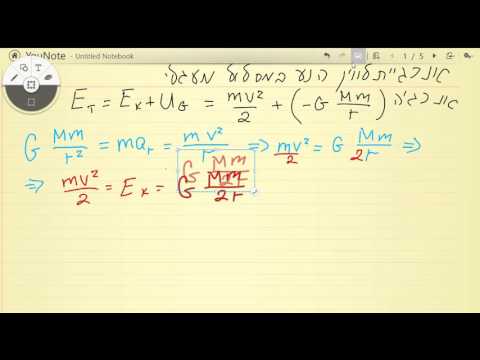 YouNote - Untitled Notebook 1 / 5
אנרגיית לווין הנע במסלול מעגלי
אנרגיה
E_T = E_K + U_G = mv²/2 + (-G Mm/r)
G Mm/r² = ma_r = mv²/r => mv²/2 = G Mm/2r =>
=> mv²/2 = E_K = G Mm/2r